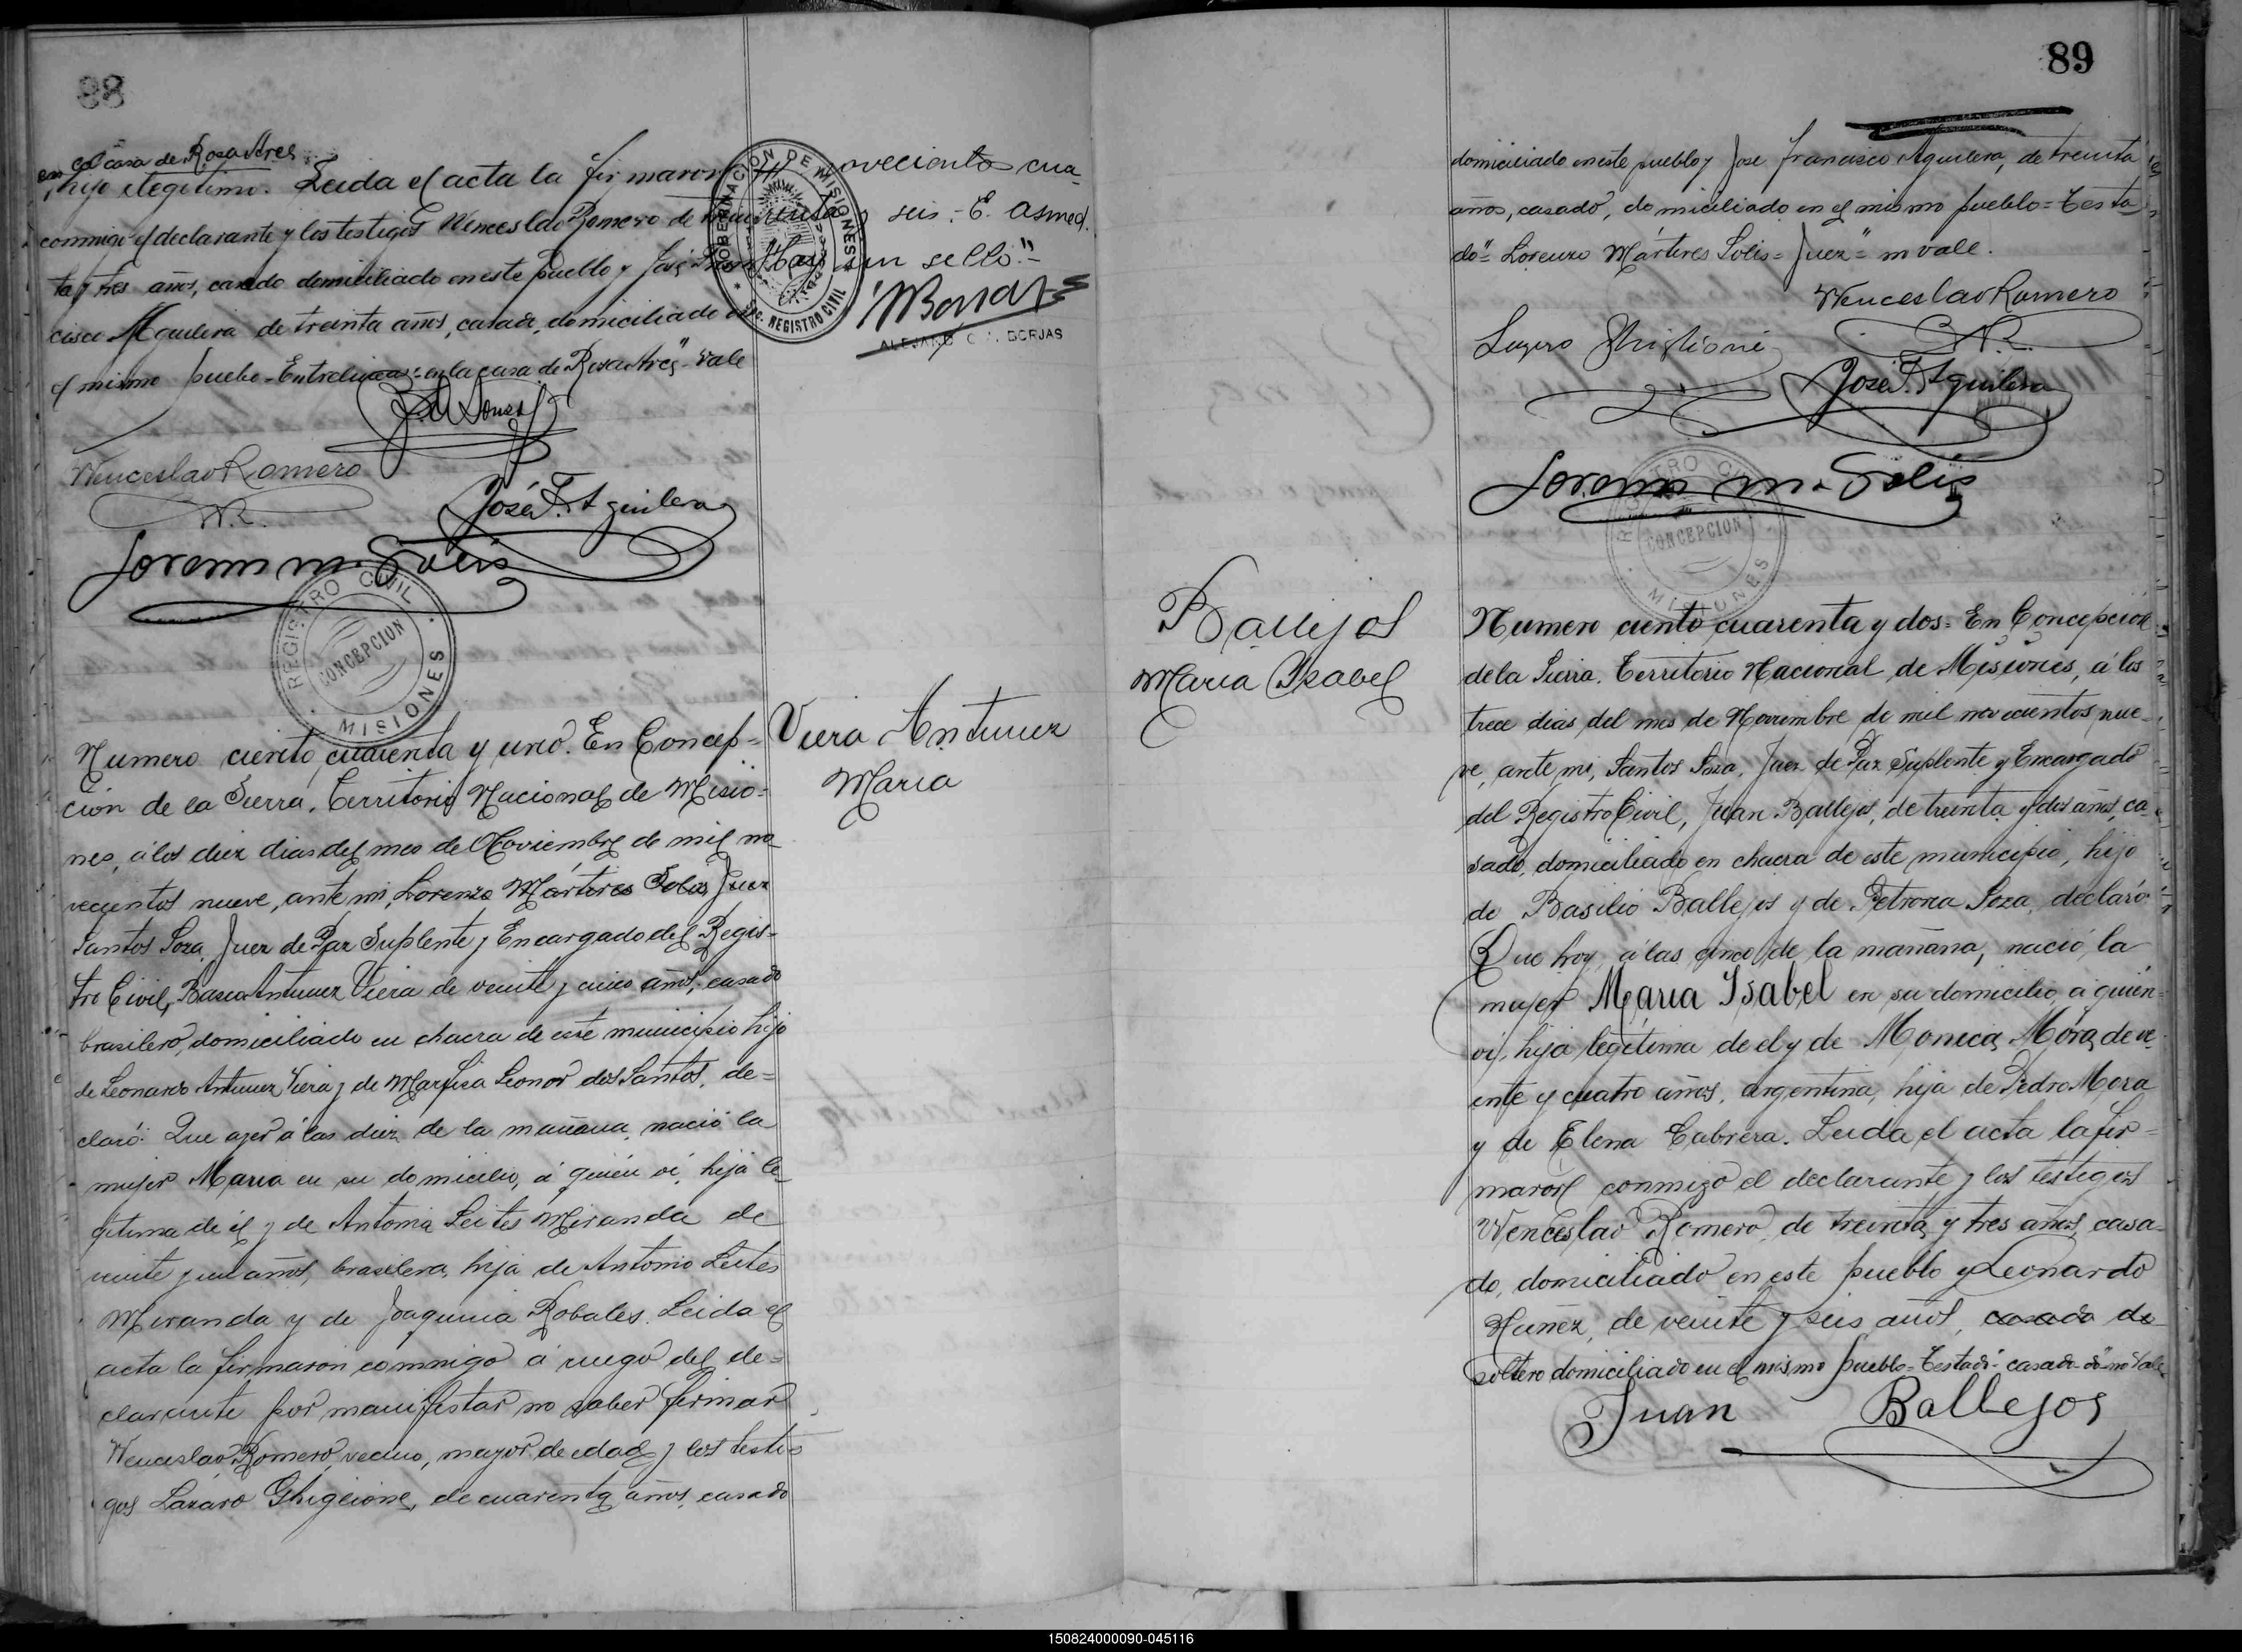 88
en la casa de Rosa Ares
hijo ilegitimo. Leida el acta la firmaron
conmigo el declarante y los testigos Wenceslao Romero de treinta
ta y tres años, casado domiciliado en este pueblo y José Fran
cisco Aguilera de treinta años, casado, domiciliado en
el mismo pueblo - Entrelineas: en la casa de Rosa Ares" - Vale
novecientos cua-
y seis.- E. Asmed.
Hay un sello."-
GOBERNACION DE MISIONES
SEC. REGISTRO CIVIL
BORJAS
Wenceslao Romero
W.R.
José F. Aguilera
Lorenzo M. Solis
REGISTRO CIVIL
CONCEPCION
MISIONES
Viera Antunez
Maria
Numero ciento cuarenta y uno. En Concep=
ción de la Sierra, Territorio Nacional de Misio=
nes, á los diez dias del mes de Noviembre de mil no
vecientos nueve, ante mi, Lorenzo Mártires Solis, Juez
Santos Soza, Juez de Paz Suplente y Encargado del Regis-
tro Civil, Antunez Viera de veinte y cinco años, casado
brasilero, domiciliado en chacra de este municipio hijo
de Leonardo Antunez Viera y de Leonor dos Santos, de=
claró: Que ayer á las diez de la mañana, nació la
mujer Maria en su domicilio, á quién ví, hija le
gitima de él y de Antonia Leites Miranda de
veinte y un años, brasilera, hija de Antonio Leites
Miranda y de Joaquina Robales. Leida el
acta la firmaron conmigo á ruego del de=
clarante por manifestar no saber firmar
Wenceslao Romero, vecino, mayor de edad y los testi=
gos Lázaro Ghiglione, de cuarenta años, casado
89
domiciliado en este pueblo y José Francisco Aguilera, de treinta
años, casado, domiciliado en el mismo pueblo = Testa
do" = Lorenzo Mártires Solis = Juez" = no vale.
Wenceslao Romero
W.R.
Lázaro Ghiglione
José F. Aguilera
Lorenzo M. Solis
REGISTRO CIVIL
CONCEPCION
MISIONES
Ballejos
Maria Isabel
Numero ciento cuarenta y dos = En Concepción
de la Sierra. Territorio Nacional de Misiones, á los
trece dias del mes de Noviembre de mil novecientos nue-
ve, ante mi, Santos Soza, Juez de Paz Suplente y Encargado
del Registro Civil, Juan Ballejos, de treinta y dos años, ca-
sado, domiciliado en chacra de este municipio, hijo
de Basilio Ballejos y de Petrona Soza, declaró:
Que hoy, á las cinco de la mañana, nació, la
mujer Maria Isabel en su domicilio, á quién
ví, hija legitima de el y de Moneca Mora, de ve-
inte y cuatro años, argentina, hija de Pedro Mora
y de Elena Cabrera. Leida el acta la fir=
maron conmigo el declarante y los testigos
Wenceslao Romero, de treinta y tres años, casa-
do, domiciliado en este pueblo y Leonardo
Nuñez, de veinte y seis años, casado do
soltero domiciliado en el mismo pueblo = Testado "casado - do" no vale
Juan Ballejos
150824000090-045116